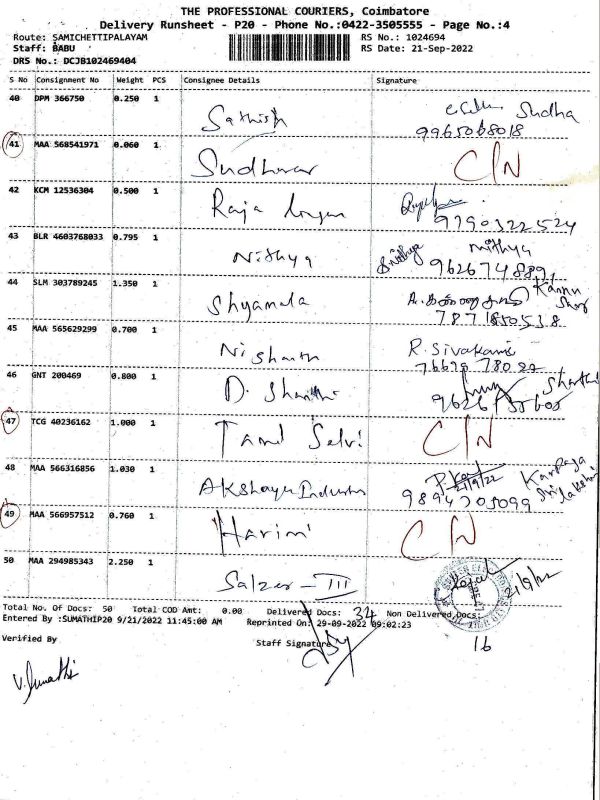 THE PROFESSIONAL COURIERS, Coimbatore
Delivery Runsheet - P20 - Phone No.:0422-3505555 - Page No.:4
Route: SAMICHETTIPALAYAM RS No.: 1024694
Staff: BABU RS Date: 21-Sep-2022
DRS No.: DCJB102469404
S No Consignment No Weight PCS Consignee Details Signature
40 DPM 366750 0.250 1 Sathish Sudha
9965068018
41 MAA 568541971 0.060 1 Sudhavar C/N
42 KCM 12536304 0.500 1 Raja
9790322524
43 BLR 4603768033 0.795 1 Nithya Nithya
44 SLM 303789245 1.350 1 Shyamala
7871850538
45 MAA 565629299 0.700 1 Nishanth R. Sivakami
46 GNT 200469 0.800 1 D. Shanthi Shanthi
47 TCG 40236162 1.000 1 Tamil Selvi C/N
48 MAA 566316856 1.030 1 Akshaya Industries 21/9/22
9894705099
49 MAA 566957512 0.760 1 Harini C/N
50 MAA 294985343 2.250 1 Salzer - III 21/9/22
Total No. Of Docs: 50 Total COD Amt: 0.00 Delivered Docs: 34 Non Delivered Docs:
Entered By :SUMATHIP20 9/21/2022 11:45:00 AM Reprinted On: 29-09-2022 09:02:23
Verified By Staff Signature 16
V. Sumathi